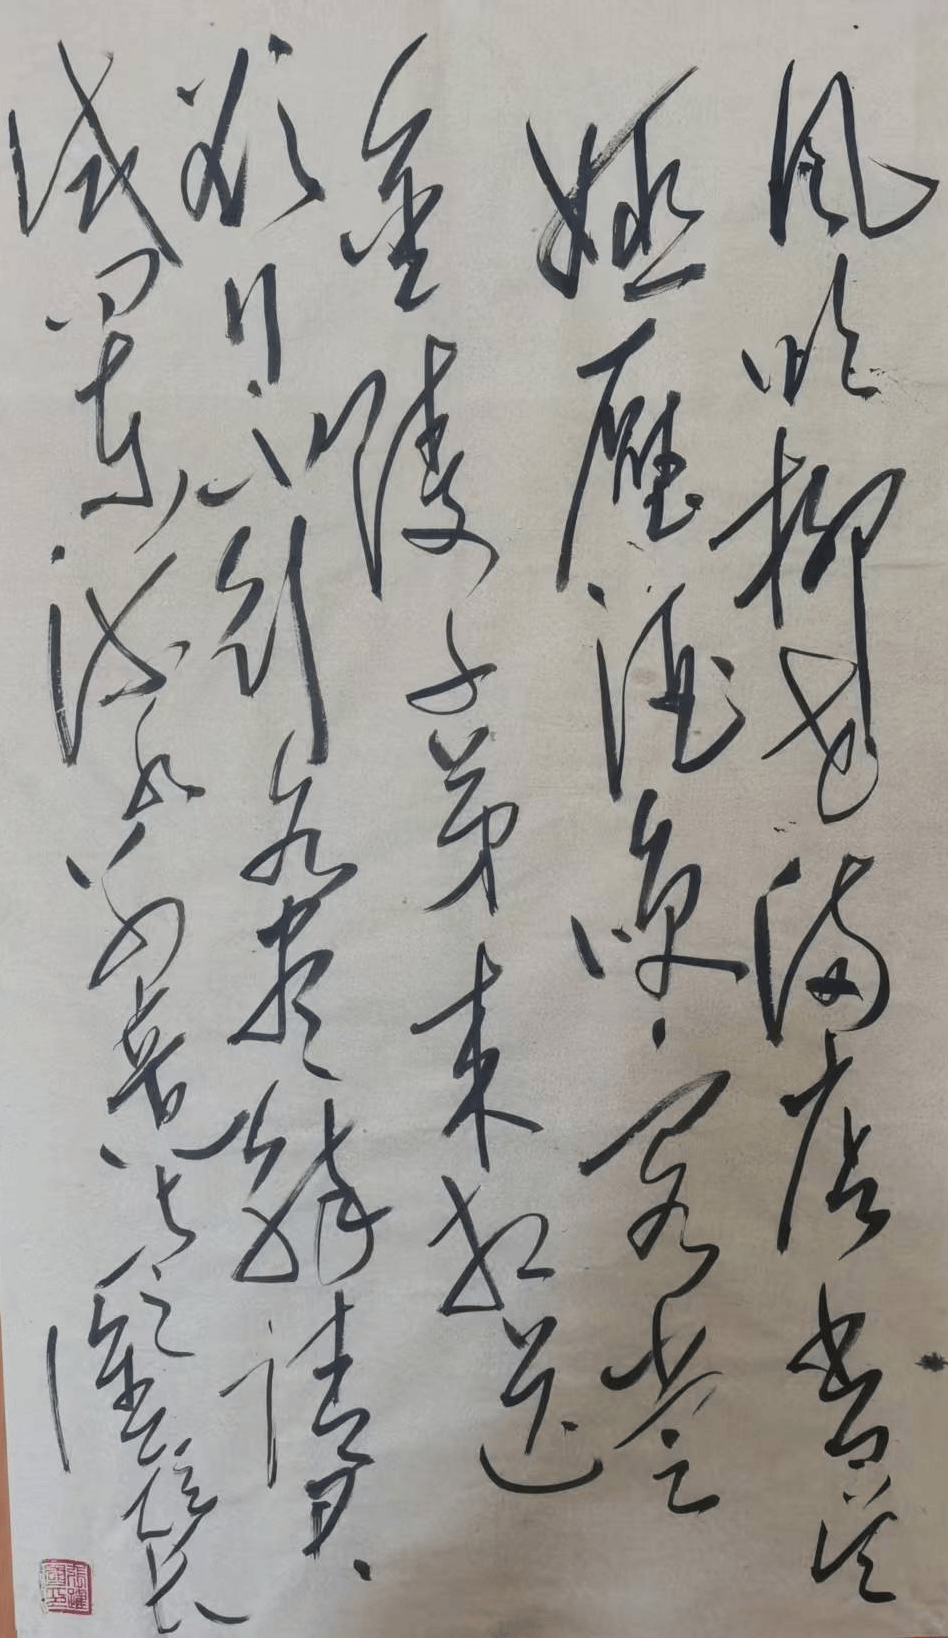 風吹柳花滿店香吴
姬壓酒唤客嘗
金陵子弟來相送
欲行不行各盡觴請君
試問東流水别意與之誰短長